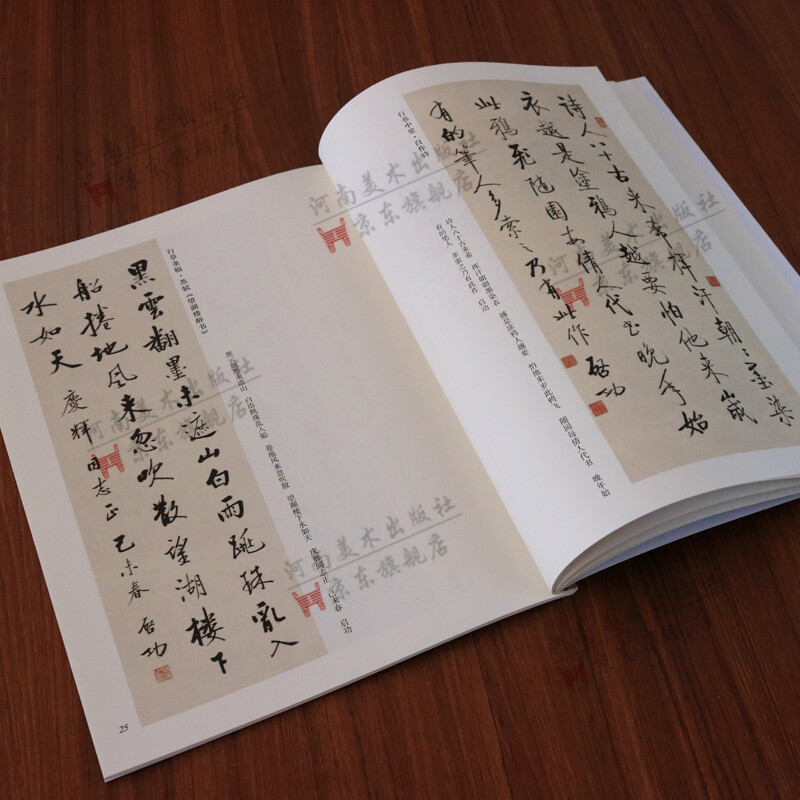 行草条幅·苏轼《望湖楼醉书》
黑雲翻墨未遮山白雨跳珠亂入
船捲地風来忽吹散望湖樓下
水如天 慶輝同志正 己未春 啓功
黑云翻墨未遮山 白雨跳珠乱入船 卷地风来忽吹散 望湖楼下水如天 庆辉同志正 己未春 启功
25
行书中堂·自作诗
诗人八十古来希揮汗朝〻墨染
衣越是塗鴉人越要怕他来歲
此鴉飛随園每倩人代书晚年始
有的筆人多索〻乃有此作 啓功
诗人八十古来希 挥汗朝朝墨染衣 越是涂鸦人越要 怕他来岁此鸦飞 随园每倩人代书 晚年始
有的笔 人多索之乃有此作 启功
河南美术出版社
京东旗舰店
河南美术出版社
京东旗舰店
河南美术出版社
京东旗舰店
河南美术出版社
京东旗舰店